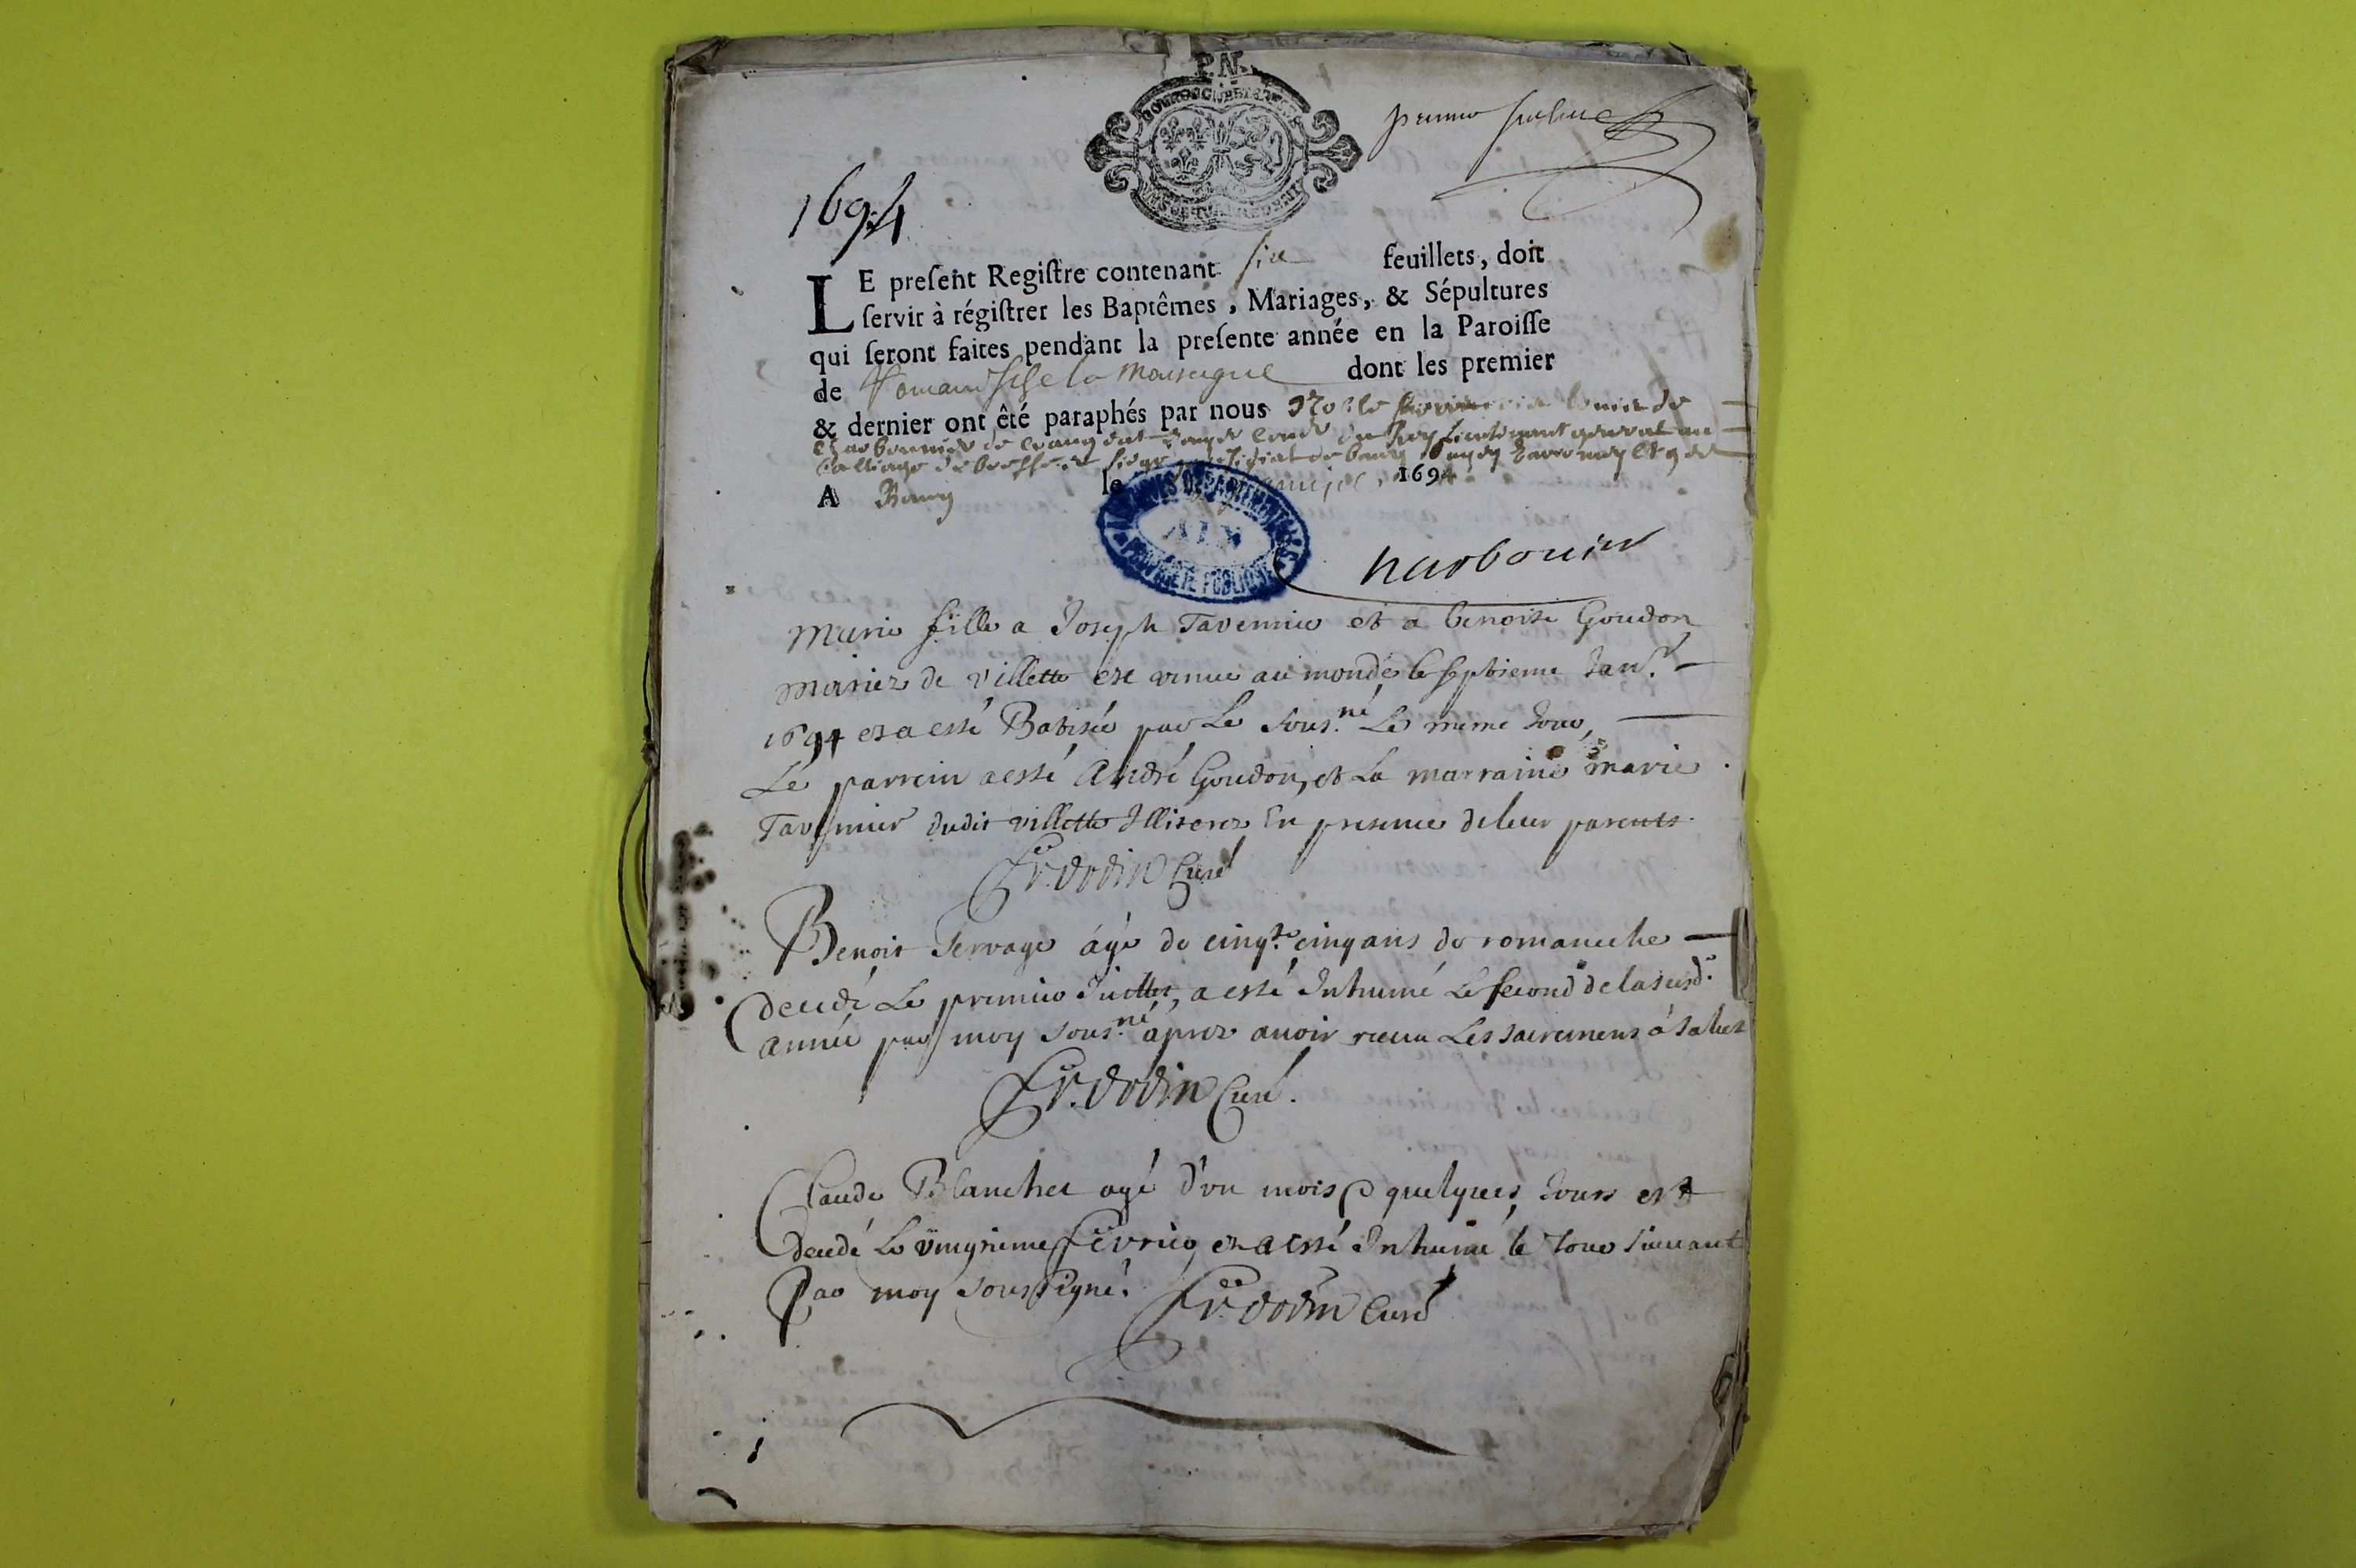 P.N.
premier
1694
LE preſent Regiſtre contenant six feuillets, doit
ſervir à régiſtrer les Baptêmes, Mariages, & Sépultures
qui ſeront faites pendant la preſente année en la Paroiſſe
de Romaneſche la Montagne dont les premier
& dernier ont êté paraphés par nous Noble
lieutenant general au
Balliage de Bresse et siege presidial de Bourg
A Bourg le 1694
ARCHIVES DÉPARTEMENTALES
AIN
PROPRIÉTÉ PUBLIQUE
Charbonnier
Marie fille a Joseph Tavernier et a benoite Goudon
mariez de villette est venue au monde le septieme Janv.r
1694 et a esté Batisée par Le sous.né Le meme Jour,
Le parrein a esté André Goudon, et La marraine marie
Tavernier dudit villette Illiterez En presence de leur parents.
Fr. Dodin Curé
Benoit Servage âgé de cinq.te cinq ans de romaneche
decedé Le premier Juillet, a esté Inhumé Le second de la susd.
année par moy sous.né âprez avoir receu Les sacremens
Fr. Dodin Curé.
Claude Blanchet agé d'un mois & quelques Jours est
decedé Le vingtieme fevrier, et a esté Inhumé le Jour suivant
Par moy soussigné.
Fr. Dodin Curé